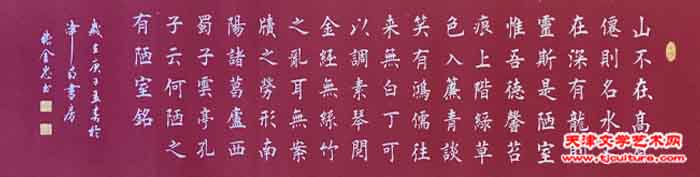 山不在高有
僊則名水
在深有龍則
靈斯是陋室
惟吾德馨苔
痕上階綠草
色入簾青談
笑有鴻儒往
来無白丁可
以調素琴閱
金經無絲竹
之亂耳無案
牘之勞形南
陽諸葛盧西
蜀子雲亭孔
子云何陋之
有陋室銘
歲在庚子孟春於
津門書房
天津文学艺术网
www.tjculture.com